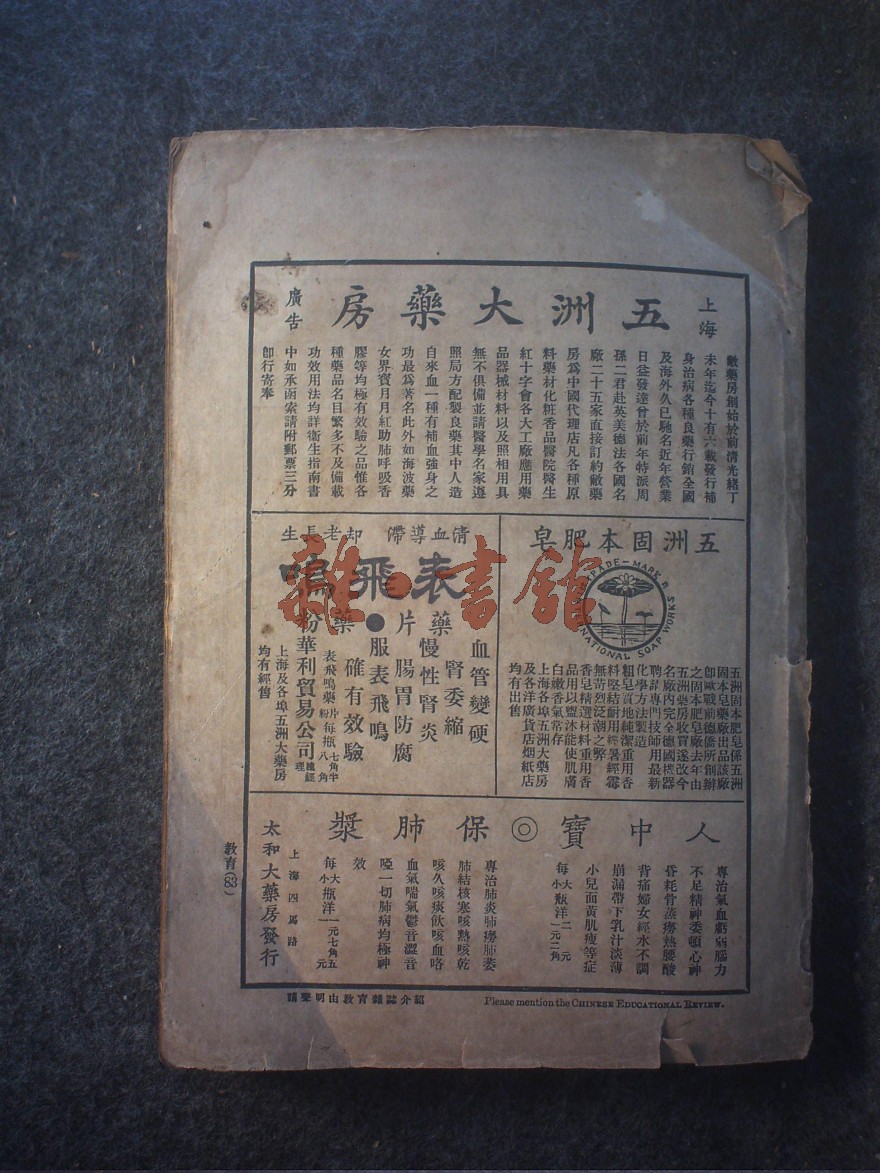 上海
五洲大藥房
廣告
敝藥房創始於前清光緒丁
未年迄今十有六載發行補
身治病各種良藥行銷全國
及海外久已馳名近年營業
日益發達曾於前年特派周
孫二君赴英美德法各國名
廠二十五家直接訂約敝藥
房爲中國代理店凡各種原
料藥材化粧香品醫院醫生
紅十字會各大工廠應用藥
品器械材料以及照相用具
無不俱備並請醫學名家遵
照局方配製良藥其中人造
自來血一種有補血強身之
功最爲著名此外如海波藥
女界寶月月紅助肺呼吸香
膠等均極有效驗之品惟各
種藥品名目繁多不及備載
功效用法均詳衛生指南書
中如承函索請附郵票三分
卽行寄奉
五洲固本肥皂
TRADE-MARK
INTERNATIONAL SOAP WORKS
五洲固本肥皂係五洲
固本皂藥廠出品該廠
卽歐戰前德僑所創辦
之固本肥皂廠去年由
五洲藥房收買遂改今
名廠內完全德國機器
聘請專門技師用最新
化學方法製造
粗皂質地純潔重用香
料堅結耐用經暑經霉
無苛烈泛潮之弊
香皂精選材料重用香
品用以盥沐能使肌膚
白嫩香氣常存
上海各埠五洲大藥房
及各洋廣貨店烟紙店
均有出售
清血導滯 却老長生
表飛鳴
血管變硬
腎委縮
慢性腎炎
腸胃防腐
服表飛鳴
確有效驗
藥片●藥粉
表飛鳴藥片每瓶七角半
粉八角
華利貿易公司總經理
上海及各埠五洲大藥房
均有經售
雜·書館
人中寶◎保肺漿
專治氣血虧弱腦力
不足精神委頓心神
昏耗骨蒸癆熱腰酸
背痛婦女經水不調
崩漏帶下乳汁淡薄
小兒面黃肌瘦等症
每大瓶洋二元
小一元二角
專治肺炎肺癆肺萎
肺結核寒咳熱咳乾
咳久咳痰飲咳血咯
血氣喘氣鬱音澀音
啞一切肺病均極神
效
每大瓶洋一元七角五
小一元
上海四馬路
太和大藥房發行
教育(83)
請聲明由教育雜誌介紹
Please mention the CHINESE EDUCATIONAL REVIEW.